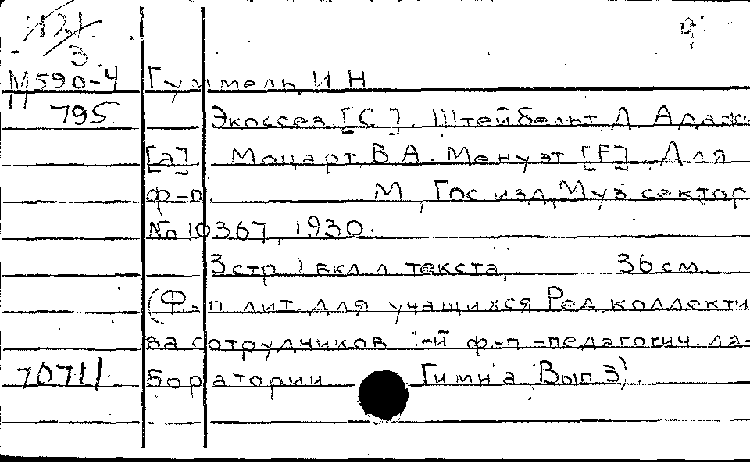 3
М590-4 Гуммель, И. Н.
П 795 Экоссез [C]. Штейбельт, Д. Адажио
[a]. Моцарт, В. А. Менуэт [F]. Для
ф-п. М., Гос. изд., Муз. сектор
№ 10367, 1930.
3 стр., 1 вкл. л. текста 36 см.
(Ф.-п. лит. для учащихся. Ред. коллекти-
ва сотрудников 1-й ф.-п.-педагогич. ла-
7071 боратории Гимн'а. Вып. 3).